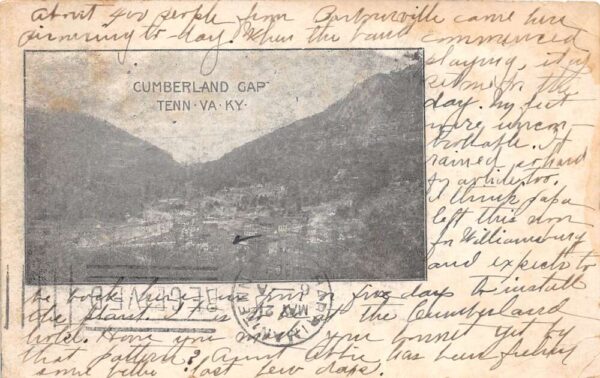 About 400 people from Barbourville came here
to day. When the band commenced
playing, it
the
day. My feet
were uncon-
trollable. It
rained so hard
for awhile, too.
I think papa
left this noon
for Williamsburg
and expects to
be back here in four or five days to install
the plant. the Cumberland
hotel. Have you your bonnet yet by
that pattern? Aunt Abbie has been feeling
some better last few days.
CUMBERLAND GAP
TENN · VA · KY ·
RECEIVED
HARRIMAN, TENN.
MAY 21